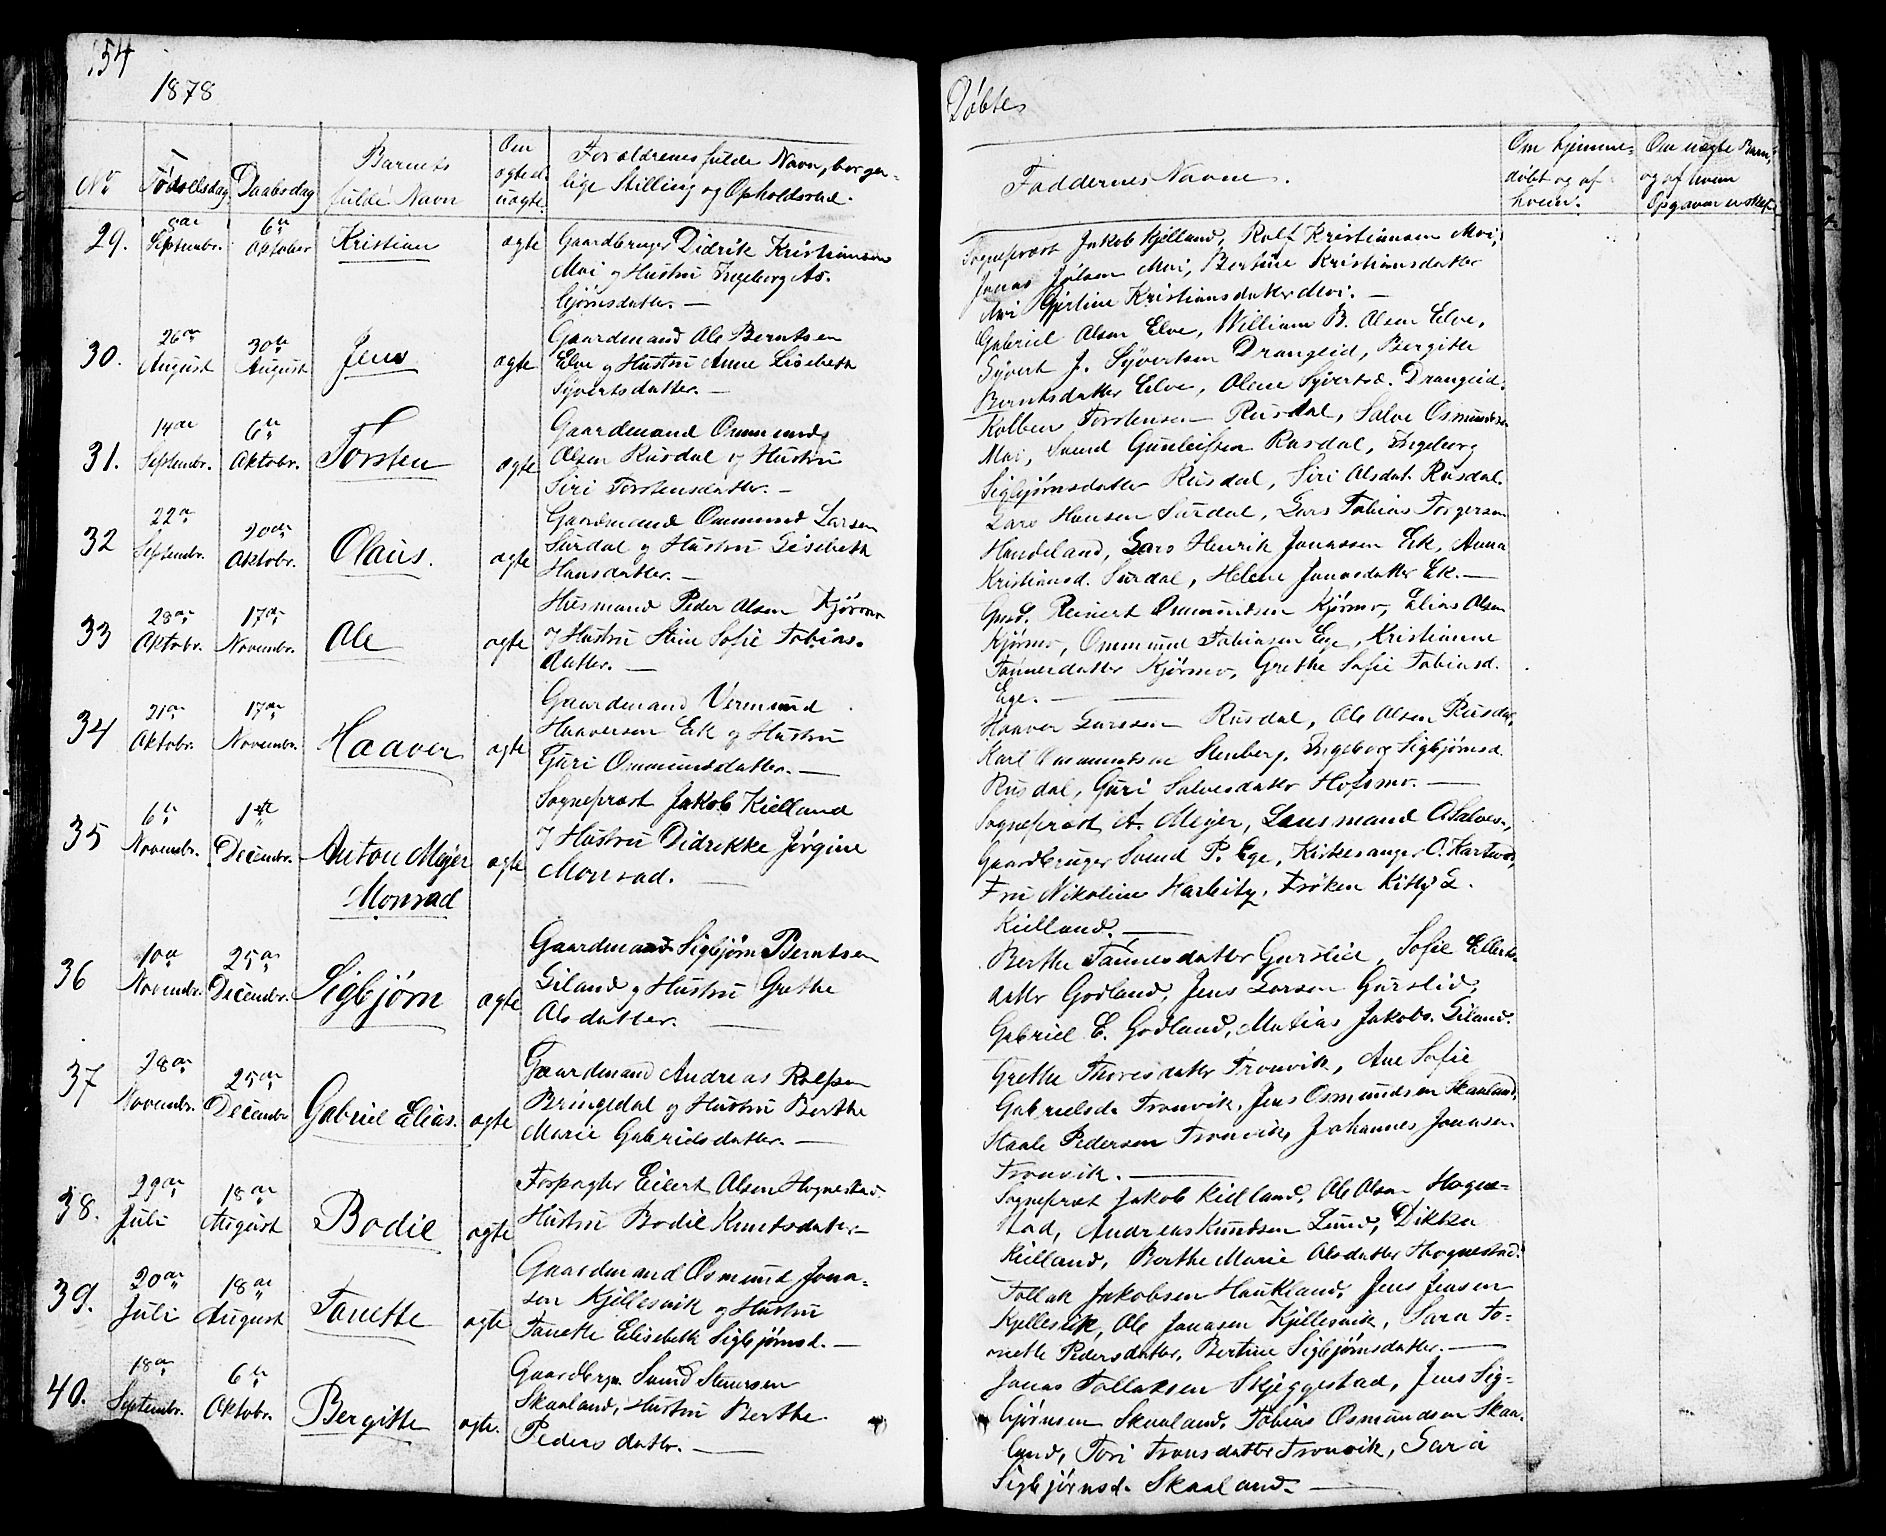 154
1878
Døbte
No
Fødselsdag
Daabsdag
Barnets
fulde Navn
Om
ægte el.
uægte.
Forældrenes fulde Navn, borger-
lige Stilling og Opholdssted.
Faddernes Navne.
Om hjemme-
døbt og af
hvem.
Om uægte Barn,
og af hvem
Opgaven er skeet
29.
Septembr.
6te
Oktober
Kristian
ægte
Gaardbruger Didrik Kristiansen
Moi og Hustru Ingeborg As-
bjørnsdatter. —
Sognepræst Jakob Kjelland, Rolf Kristiansen Moi,
Jonas Moi, Bertine Kristiansdatter
Moi Kristiansdatter Moi. —
30.
26de
August
30te
August
Jens
ægte
Gaardmand Ole Berntsen
Elve og Hustru Anne Lisebeth
Syvertsdatter. —
Gabriel Olsen Elve, William B. Olsen Elve,
Syvert J. Syvertsen Drangeid, Bergitte
Berntsdatter Elve, Olene Syvertsd. Drangeid.
31.
14de
Septembr.
6te
Oktobr.
Torsten
ægte
Gaardmand Ommund
Olsen Rusdal og Hustru
Siri Torstensdatter. —
Kolben Torstensen Rusdal, Salve Osmundsen
Moi, Svend Gunleifsen Rusdal, Ingeborg
Sigbjørnsdatter Rusdal, Siri Olsdat. Rusdal.
32
22de
Septembr.
20de
Oktobr.
Olaus.
ægte
Gaardmand Ommund Larsen
Surdal og Hustru Lisebeth
Hansdatter. —
Lars Hansen Surdal, Lars Tobias Torgersen
Handeland, Lars Henrik Jonassen Eik, Anna
Kristiansd. Surdal, Helene Jonasdatter Ek. —
33
28de
Oktobr.
17de
Novembr.
Ole
ægte
Husmand Peder Olsen Kjørmo
og Hustru Stine Sofie Tobias-
datter. —
Gmd. Reinert Ommundsen Kjørmo, Elias Olsen
Kjørmo, Ommund Tobiasen Ege, Kristianne
Tønnesdatter Kjørmo, Grethe Sofie Tobiasd.
Ege. —
34
21de
Oktobr.
17de
Novembr.
Haaver
ægte
Gaardmand Vermund
Haaversen Eik og Hustru
Guri Ommundsdatter. —
Haaver Larssen Rusdal, Ole Olsen Rusdal,
Karl Ommundsen Stenberg, Ingeborg Sigbjørnsd.
Rusdal, Guri Salvesdatter Hofsmo. —
35
6te
Novembr.
1ste
Decembr.
Anton Mejer
Monrad
ægte
Sognepræst Jakob Kielland
og Hustru Didrikke Jørgine
Monrad. —
Sognepræst A. Mejer, Lensmand O. Salvesen,
Gaardbruger Svend P. Ege, Kirkesanger O.
Fru Nikoline Frøken Kitty L.
Kielland. —
36
10de
Novembr.
25de
Decembr.
Sigbjørn
ægte
Gaardmand Sigbjørn Berntsen
Eiland og Hustru Grethe
Olsdatter. —
Berthe Tønnesdatter Gurslid, Sofie Eilerts-
datter Godland, Jens Larsen Gurslid,
Gabriel E. Godland, Matias Jakobs. Eiland.
37
28de
Novembr.
25de
Decembr
Gabriel Elias.
ægte
Gaardmand Andreas Rolfsen
Bringedal og Hustru Berthe
Marie Gabrielsdatter. —
Grethe Thoresdatter Tronvik, Ane Sofie
Gabrielsdr Tronvik, Jens Osmundsen Skaaland,
Staale Pedersen Tronvik, Johannes Jonasen
Tronvik. —
38.
29de
Juli
18de
August
Bodil
ægte
Forpagter Eilert Olsen Hognestad
Hustru Bodil Knutsdatr. —
Sognepræst Jakob Kielland, Ole Olsen Hogne-
stad, Andreas Knudsen Lund, Dikka
Kielland, Berthe Marie Olsdatter Hognestad.
39.
20de
Juli
18de
August
Tanette
ægte
Gaardmand Osmund Jona-
sen Kjellesvik og Hustru
Tanette Elisebeth Sigbjørnsd. —
Tollak Jakobsen Haukland, Jens Jensen
Kjellesvik, Ole Jonasen Kjellesvik, Sara To-
nette Pedersdatter, Bertine Sigbjørnsdatter. —
40.
18de
Septembr.
6te
Oktobr.
Bergitte
ægte.
Gaardbrgr. Svend
Skaaland, Hustru Berthe
Pedersdatter. —
Jonas Tollaksen Skjeggestad, Jens Sig-
bjørnsen Skaaland, Tobias Osmundsen Skaa-
land, Tori Tronsdatter Tronvik, Sara
Sigbjørnsd. Skaaland. —